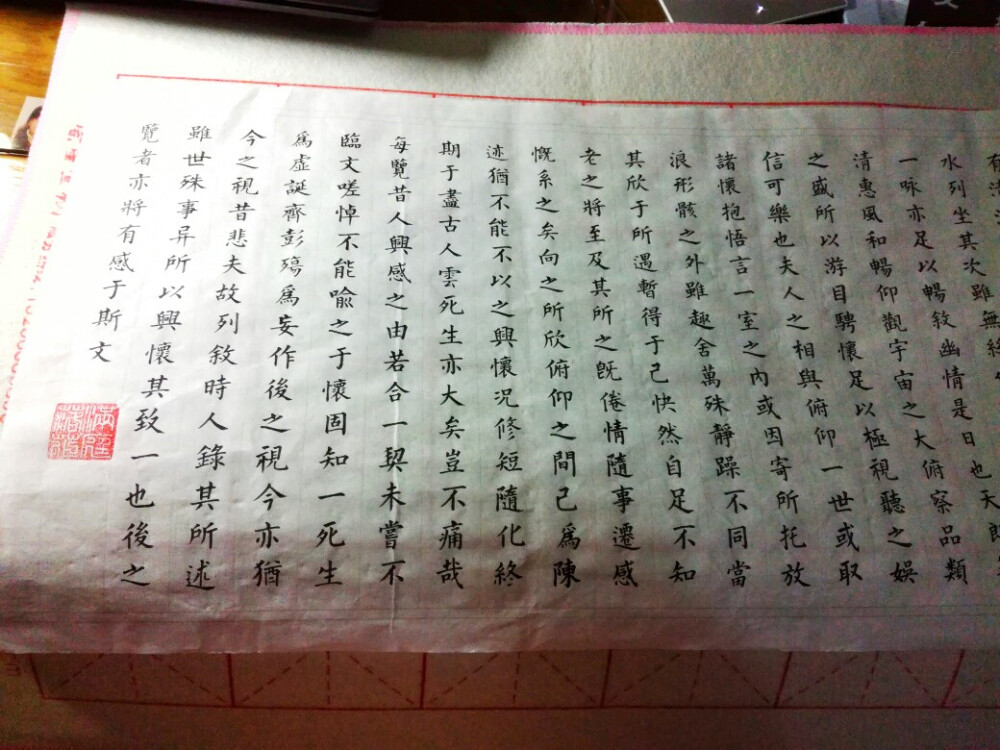 水列坐其次雖無絲
一咏亦足以暢敘幽情是日也天朗
清惠風和暢仰觀宇宙之大俯察品類
之盛所以游目騁懷足以極視聽之娛
信可樂也夫人之相與俯仰一世或取
諸懷抱悟言一室之內或因寄所托放
浪形骸之外雖趣舍萬殊靜躁不同當
其欣于所遇暫得于己快然自足不知
老之將至及其所之既倦情隨事遷感
慨系之矣向之所欣俯仰之間已爲陳
迹猶不能不以之興懷況修短隨化終
期于盡古人雲死生亦大矣豈不痛哉
每覽昔人興感之由若合一契未嘗不
臨文嗟悼不能喻之于懷固知一死生
爲虛誕齊彭殤爲妄作後之視今亦猶
今之視昔悲夫故列敘時人錄其所述
雖世殊事异所以興懷其致一也後之
覽者亦將有感于斯文